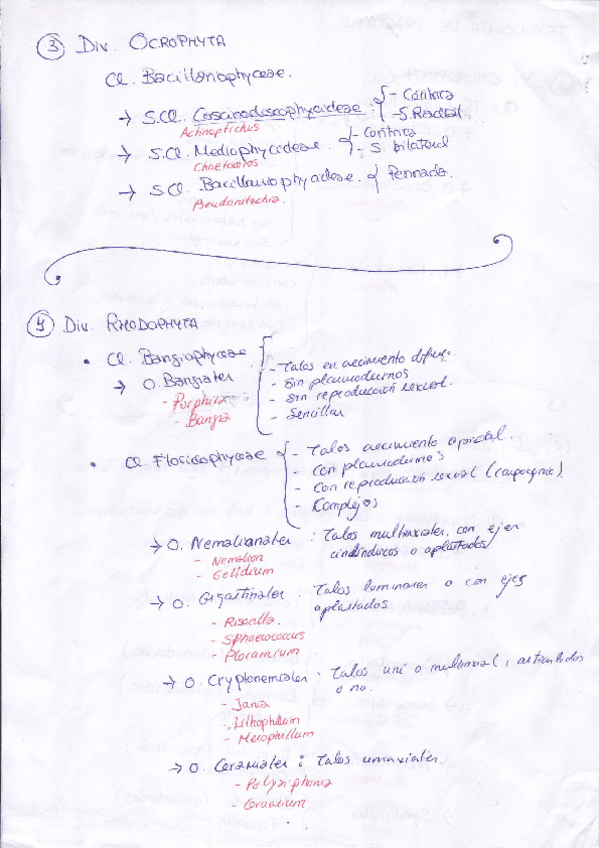 ③ Div. OCROPHYTA
Cl. Bacillariophyceae.
→ S.Cl. Coscinodiscophycideae { - Céntrica
- S. Radial
Achnoptichus
→ S.Cl. Mediophycideae { - Céntrica
- S. bilateral
Chaetoceros
→ S.Cl. Bacillariophycideae { Pennada.
Pseudonitschia.
④ Div. RHODOPHYTA
• Cl. Bangiophyceae { - Talos en crecimiento difuso.
→ O. Bangiales - Sin plasmodesmos
- Porphira - Sin reproducción sexual.
- Bangia - Sencillas
• Cl. Floridophyceae { - Talos crecimiento apical.
- Con plasmodesmos
- Con reproducción sexual (carpogonio)
- Complejos
→ O. Nemalionales : Talos multiaxiales, con ejes
cilíndricos o aplastados
- Nemalion
- Gelidium
→ O. Gigartinales : Talos laminares o con ejes
aplastados
- Rissoella.
- Sphaerococcus
- Plocamium
→ O. Cryptonemiales : Talos uni o multiaxial, articulados
o no.
- Jania
- Lithophyllum
- Mesophyllum
→ O. Ceramiales : Talos uniaxiales.
- Polysiphonia
- Ceramium